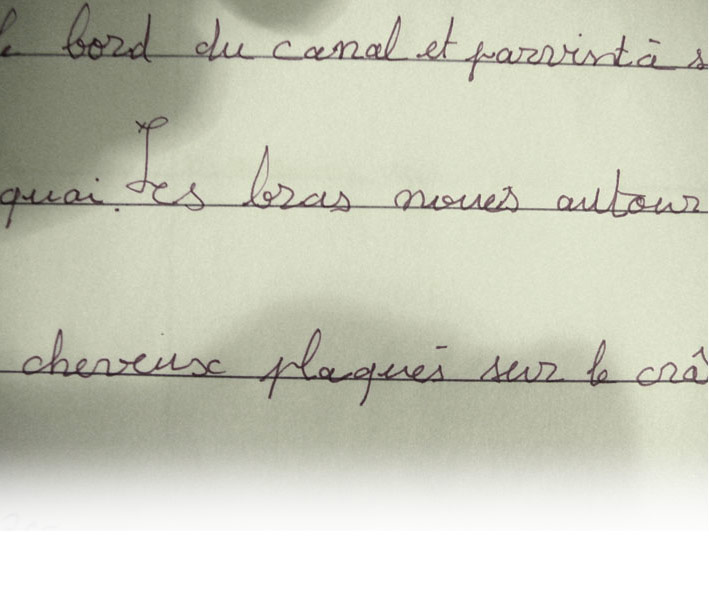 bord du canal et parvint à s
quai. Les bras noués autour
cheveux plaqués sur le crâ